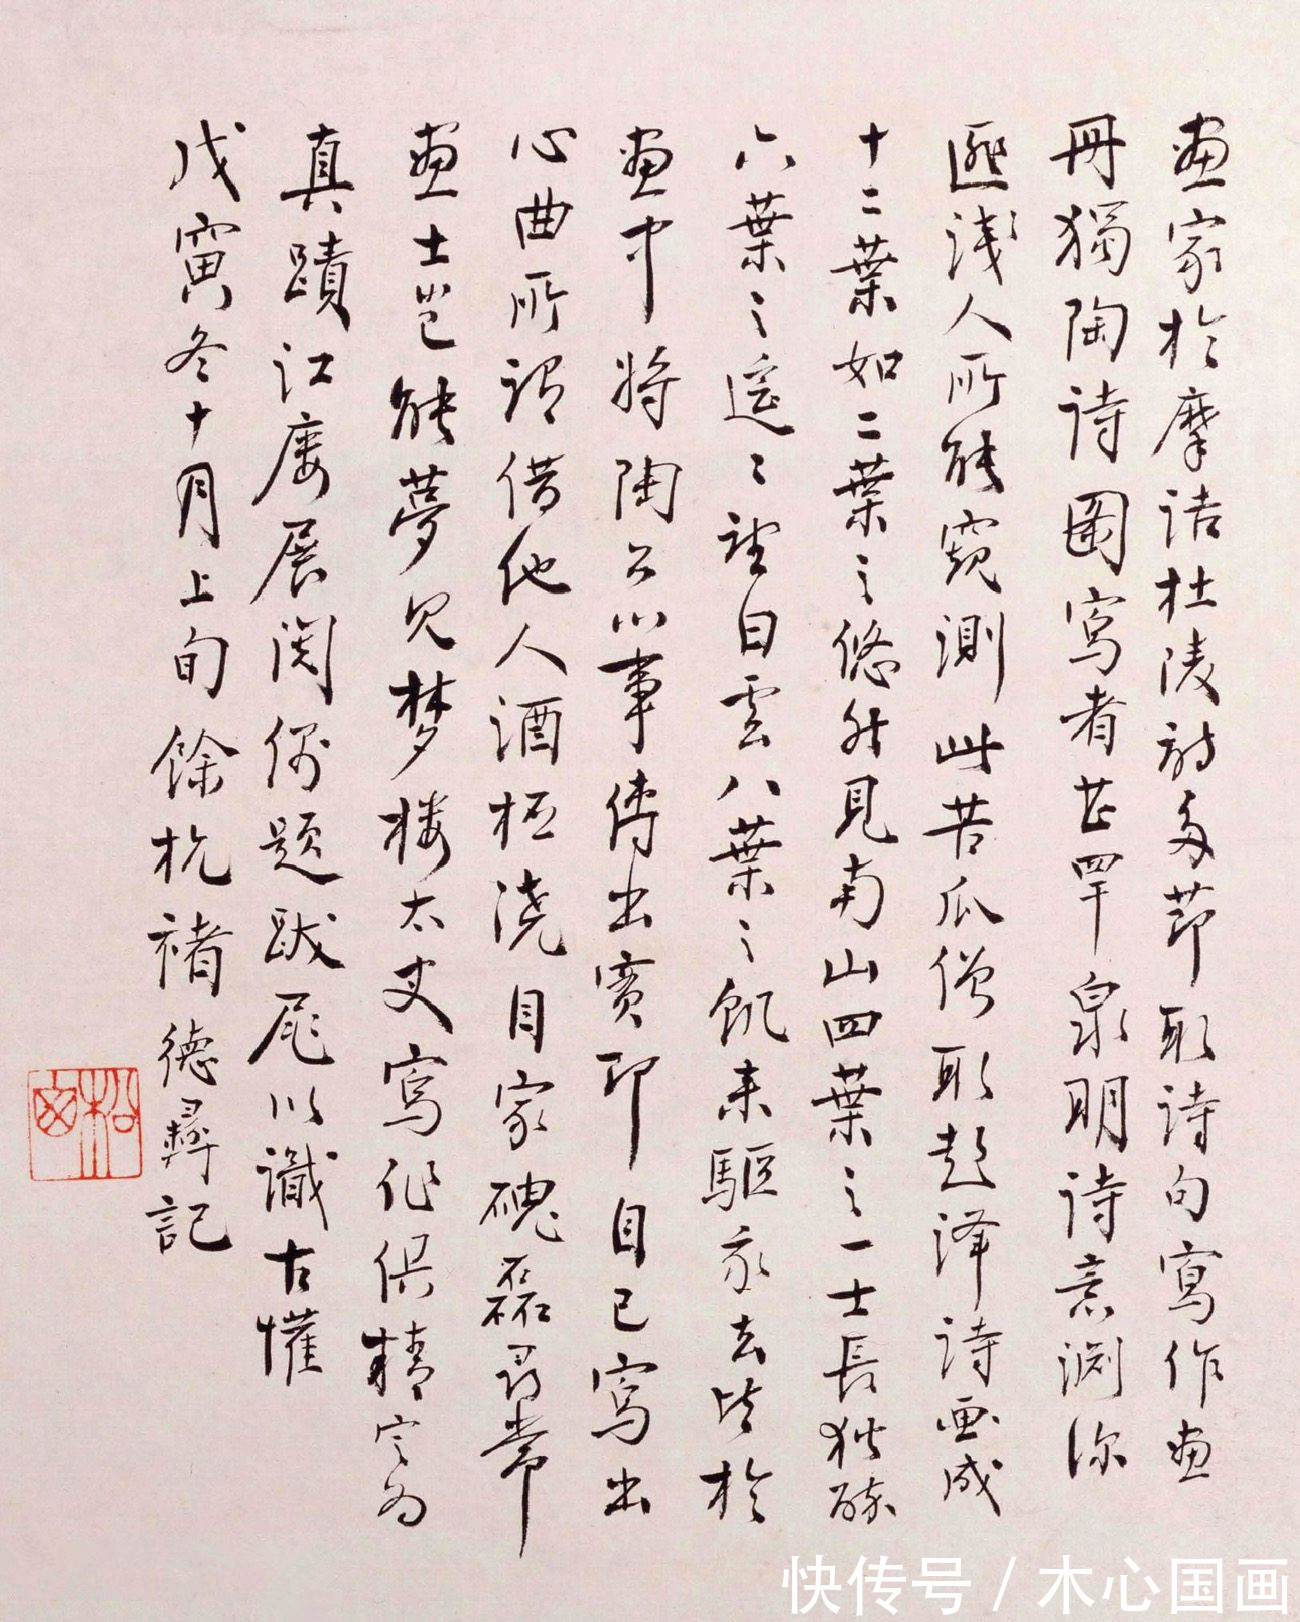 畫家於摩詰杜陵詩多節取詩句寫作畫
冊獨陶詩圖寫者甚罕泉明詩意淵深
匪淺人所能窺測此苦瓜僧取彭澤詩画成
十二葉如二葉之悠然見南山四葉之一士長獨醉
六葉之遥々望白雲八葉之飢来驅我去皆於
畫中將陶公心事傳出實即自己寫出
心曲所謂借他人酒杯澆自家磈磊尋常
畫士豈能夢見梦楼太史寫作俱精定為
真蹟江庽展閱偶題跋尾以識古懽
戊寅冬十月上旬餘杭褚德彝記
松
快传号 / 木心国画